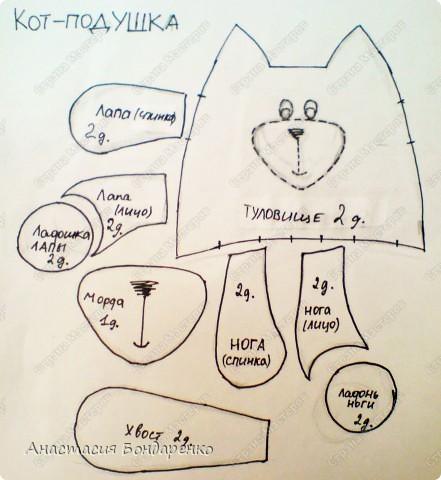 КОТ-ПОДУШКА
ЛАПА (спинка)
2 д.
Лапа
(лицо)
2 д.
Ладошка
ЛАПЫ
2 д.
ТУЛОВИЩЕ 2 д.
Морда
1 д.
2 д.
НОГА
(спинка)
2 д.
Нога
(лицо)
Ладонь
Ноги
2 д.
ХВОСТ 2 д.
Анастасия Бондаренко